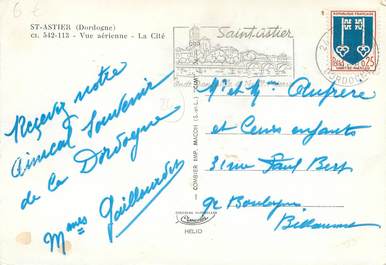 ST-ASTIER (Dordogne)
cx. 542-113 - Vue aérienne - La Cité
Saint-astier
REPUBLIQUE FRANÇAISE
0,25
Recevez notre
Amical Souvenir
de la Dordogne
Mmes Gaillourdes
COMBIER IMP. MACON (S.-et-L.)
HELIO
Mr et Mme Aufrère
et Leurs enfants
31 rue Paul Bert
92 Boulogne
Billancourt